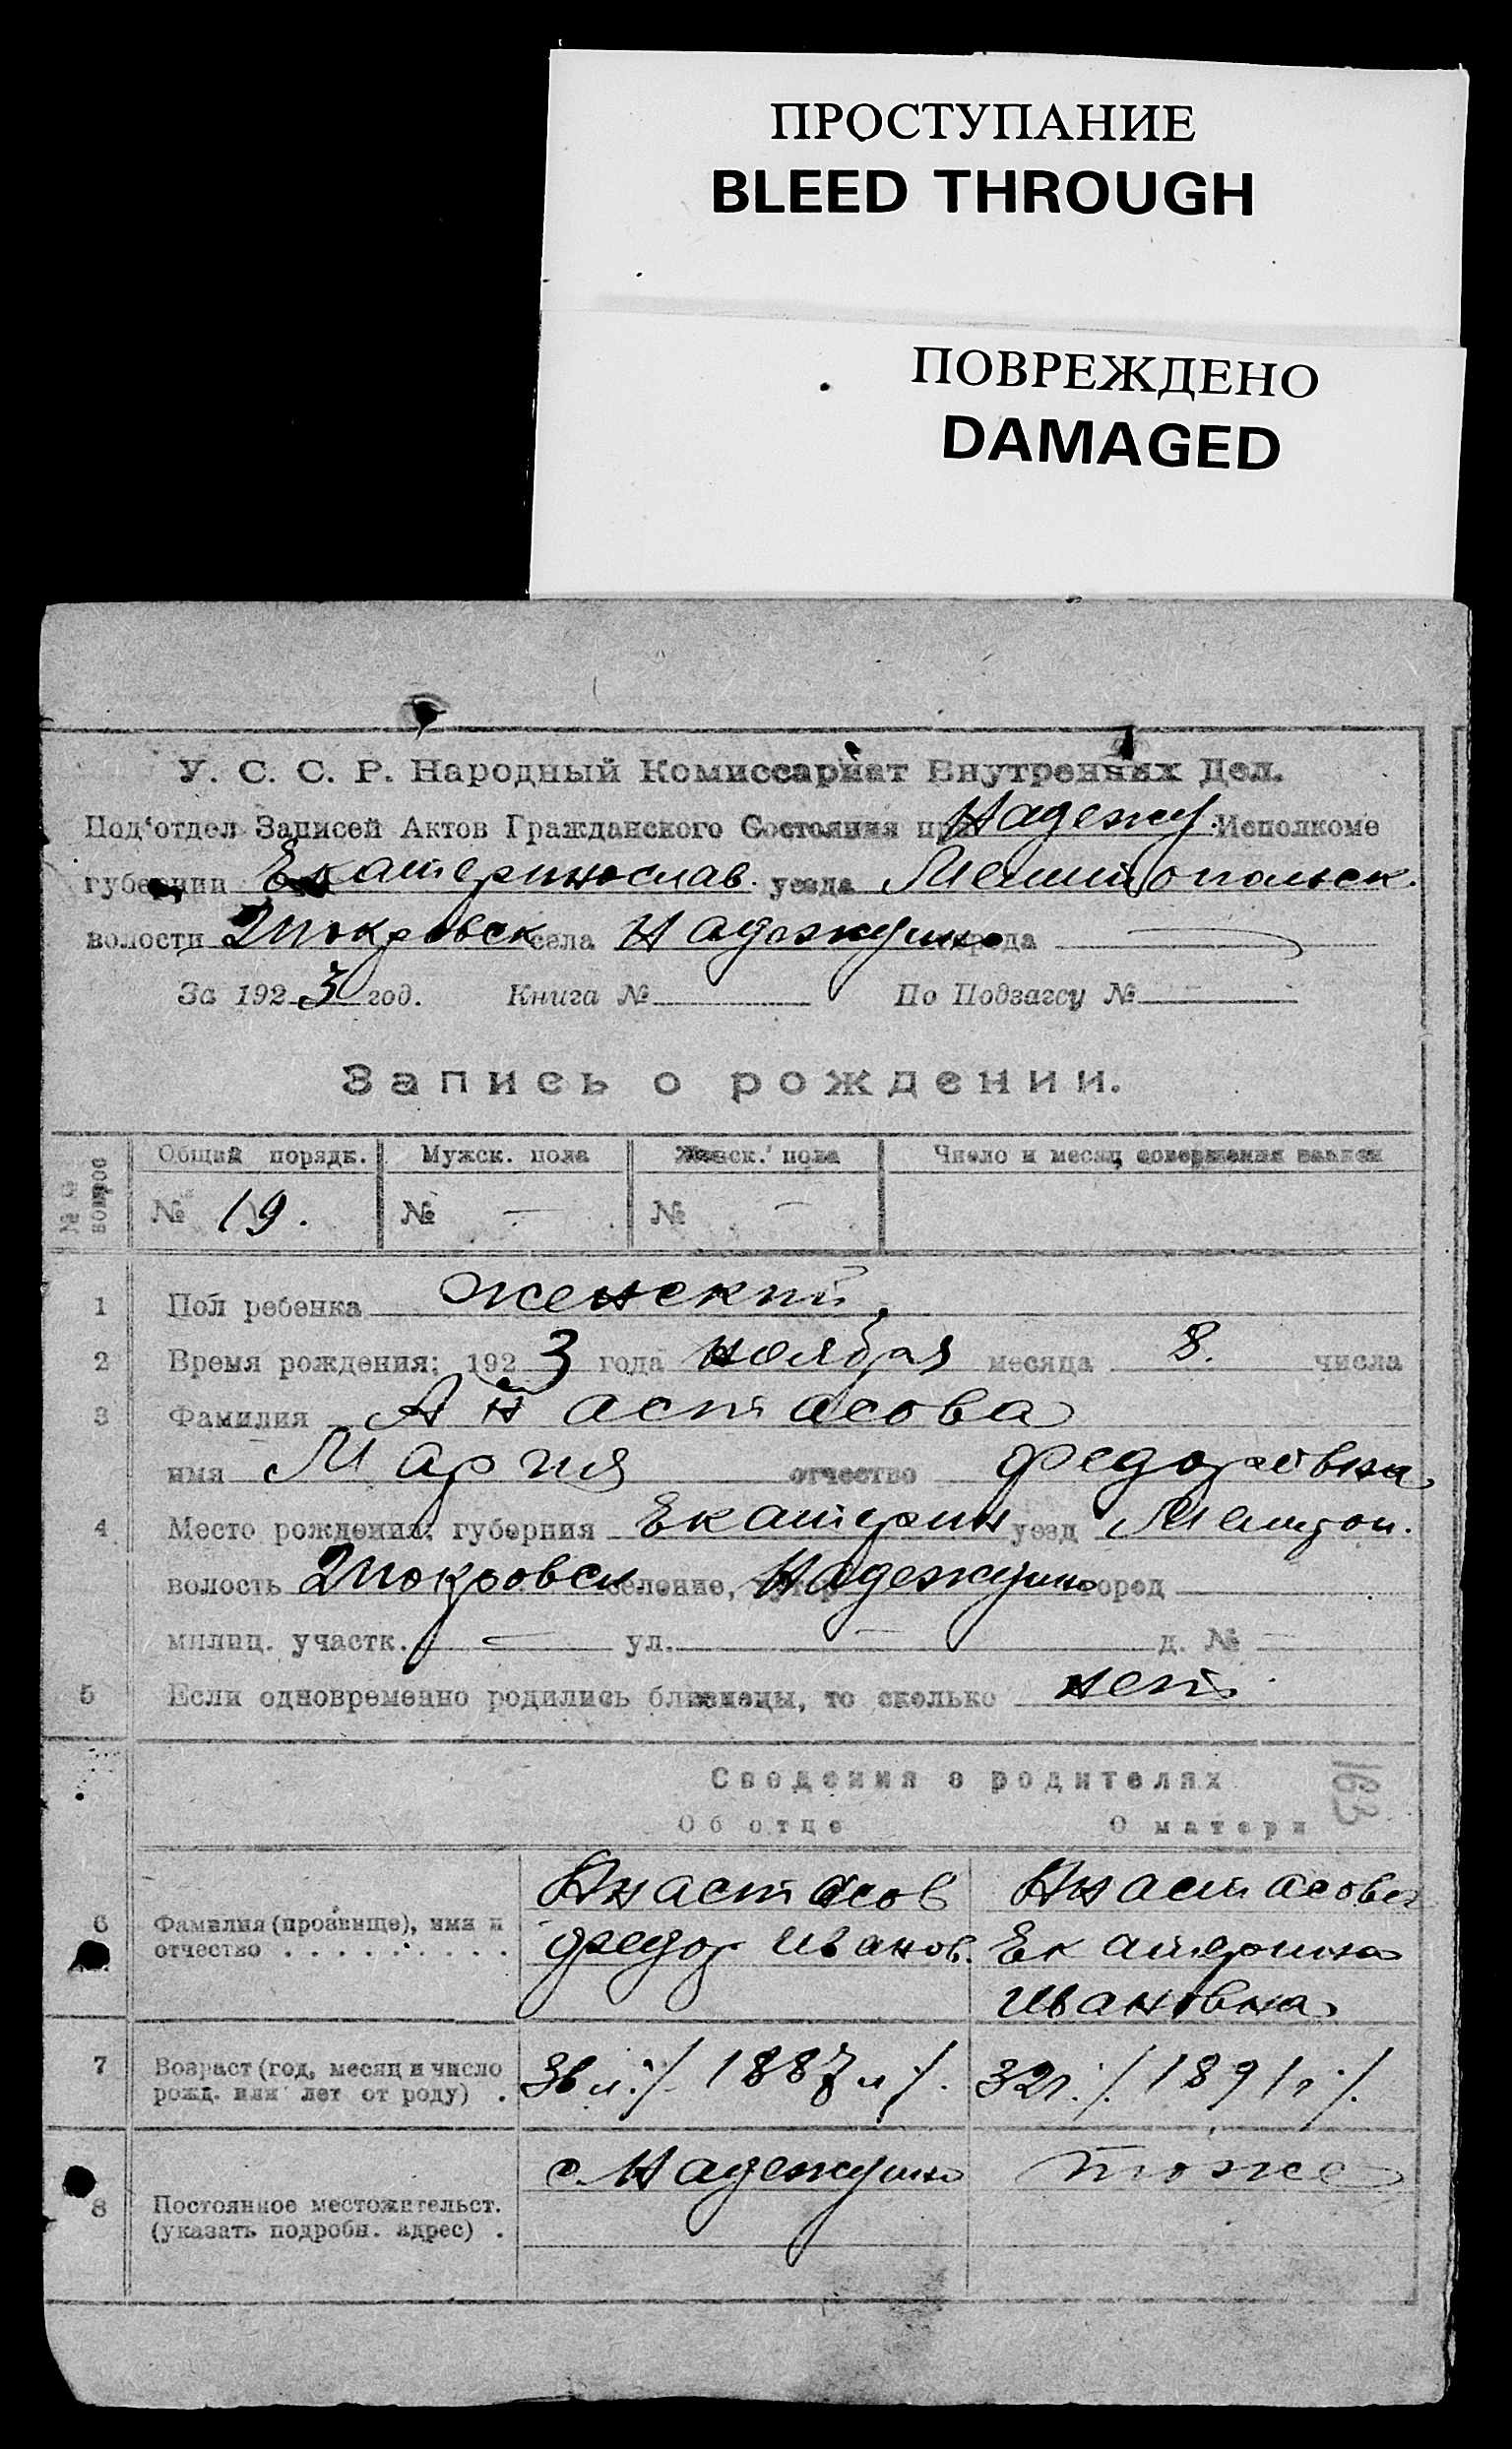 ПРОСТУПАНИЕ
BLEED THROUGH
ПОВРЕЖДЕНО
DAMAGED
У. С. С. Р. Народный Комиссариат Внутренних Дел.
Под'отдел Записей Актов Гражданского Состояния при Надежд. Исполкоме
губернии Екатеринослав. уезда Мелитопольск.
волости 2 Покровск села Надеждино города —
За 1923 год. Книга № По Подзагсу № —
Запись о рождении.
№№ вопрос
Общий порядк. Мужск. пола Женск. пола Число и месяц совершения записи
№ 19. № — № —
1 Пол ребенка женский.
2 Время рождения: 1923 года ноября месяца 8. числа
3 Фамилия Анастасова
имя Мария отчество Федоровна
4 Место рождения: губерния Екатерин уезд Мелитоп.
волость 2 Покровск селение, хутор Надеждино город
милиц. участк. — ул. — д. № —
5 Если одновременно родились близнецы, то сколько нет
Сведения о родителях
163
Об отце О матери
Анастасов Анастасова
6 Фамилия (прозвище), имя и
отчество . . . . . . . . . Федор Иванов. Екатерина
Ивановна
7 Возраст (год, месяц и число
рожд. или лет от роду) . 36 л. /. 1887 /. 32 г. /. 1891 г. /.
с. Надеждино тоже
8 Постоянное местожительст.
(указать подробн. адрес) .